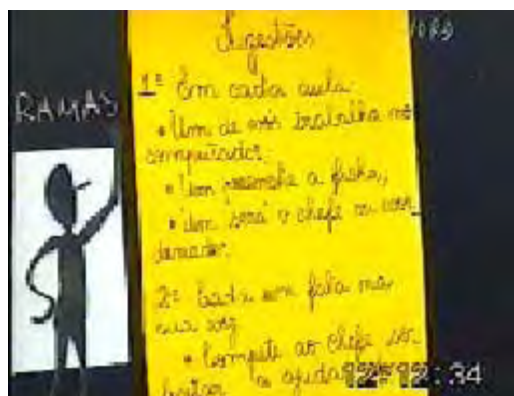 Sugestões
RAMAS
1º Em cada aula
• Um de vós trabalha no
computador.
• Um preenche a ficha,
• Um será o chefe ou coor_
denador.
2º Cada um fala na
sua vez
• Compete ao chefe so_
a ajuda
:34